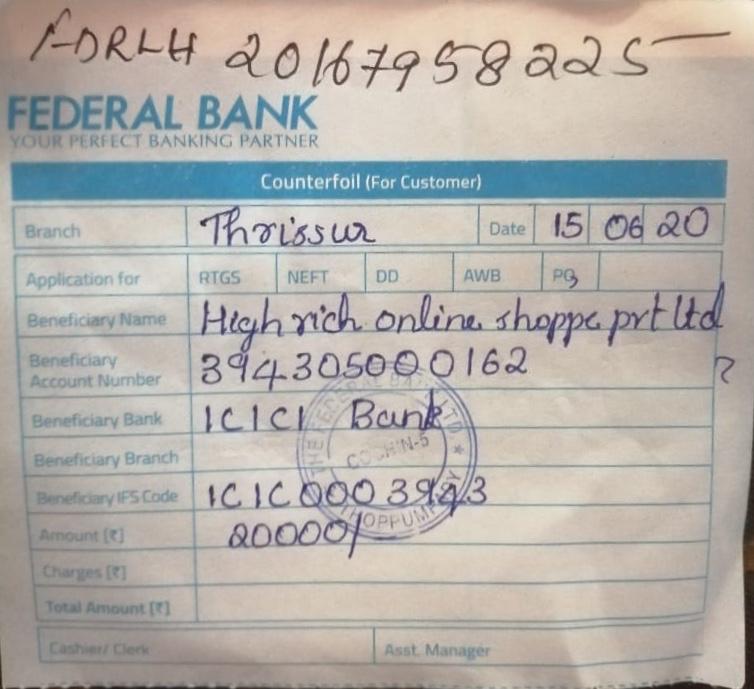 FDRLH 20167958225
FEDERAL BANK
YOUR PERFECT BANKING PARTNER
Counterfoil (For Customer)
Branch Thrissur Date 15 06 20
Application for RTGS NEFT DD AWB PO
Beneficiary Name High rich online shoppe prt ltd
Beneficiary Account Number 394305000162
Beneficiary Bank ICICI Bank
Beneficiary Branch
Beneficiary IFS Code ICIC0003943
Amount [₹] 20000/
Charges [₹]
Total Amount [₹]
Cashier/ Clerk Asst. Manager
THE FEDERAL BANK LTD. ★
COCHIN-5
THOPPUMPADY